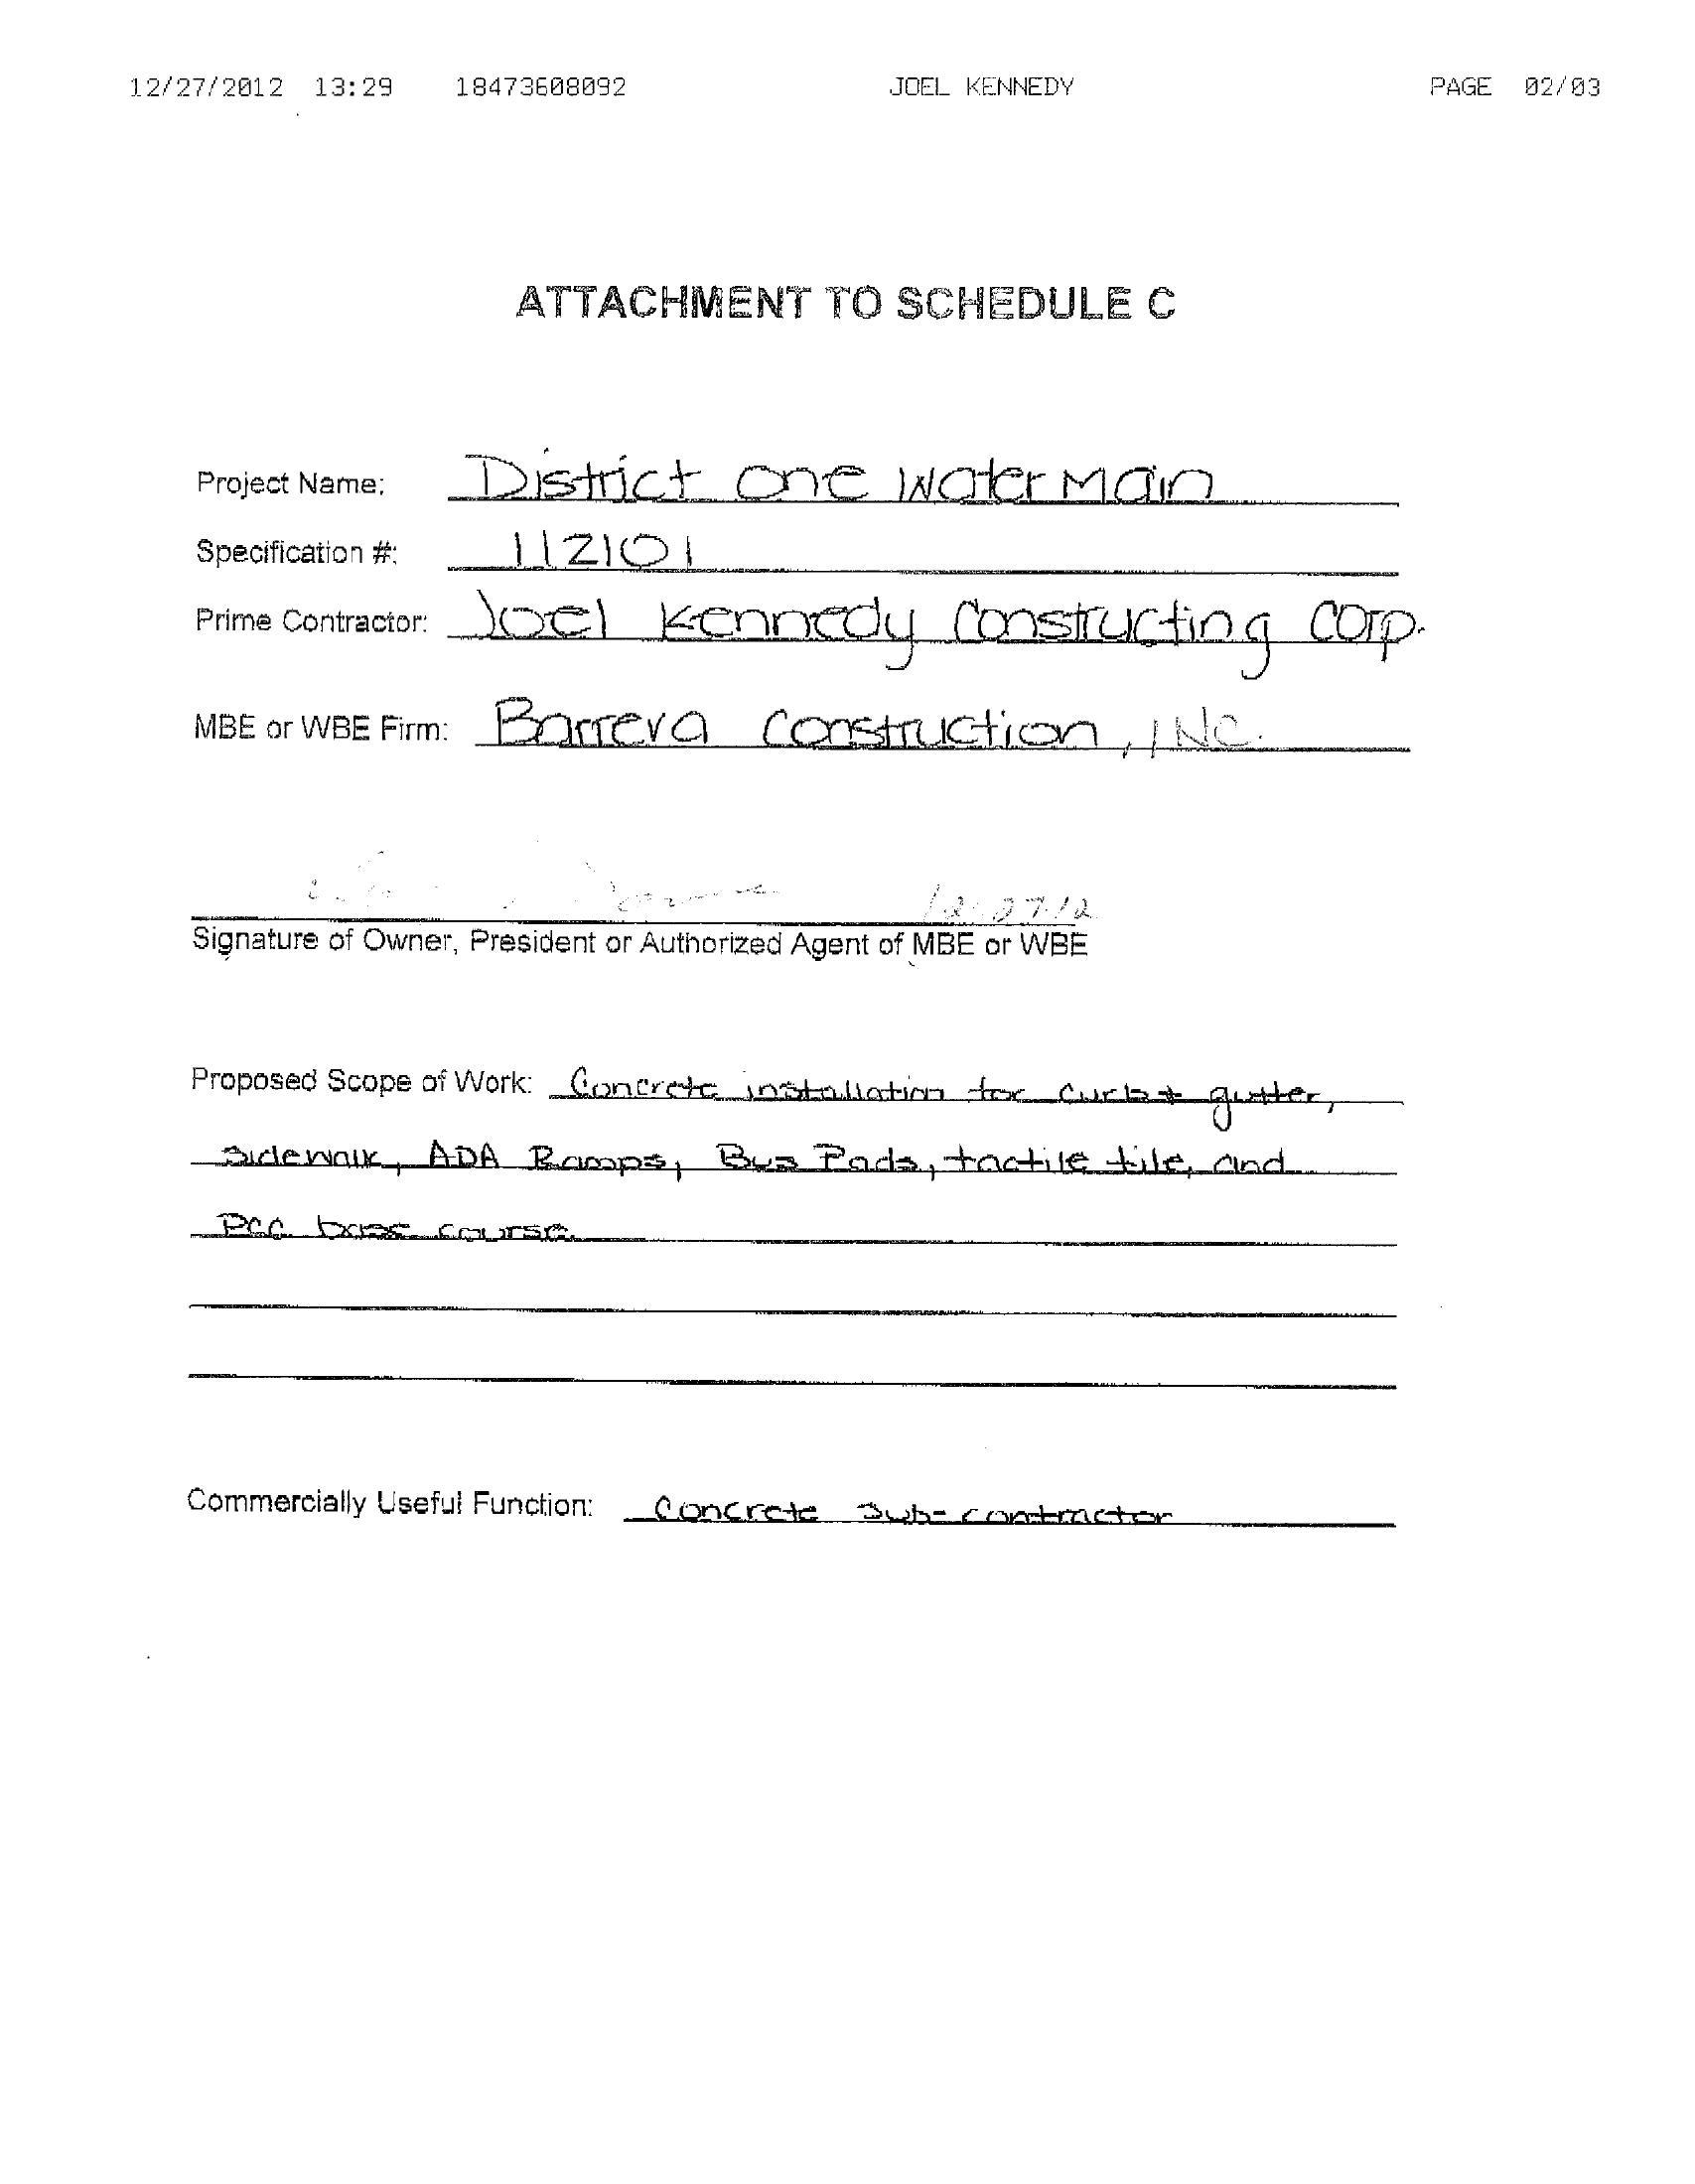 12/27/2012 13:29 18473608092 JOEL KENNEDY PAGE 02/03
ATTACHMENT TO SCHEDULE C
Project Name: District One Water Main
Specification #: 112101
Prime Contractor: Joel Kennedy Constructing Corp.
MBE or WBE Firm: Barrera Construction, INC.
12-27-12
Signature of Owner, President or Authorized Agent of MBE or WBE
Proposed Scope of Work: Concrete installation for curb + gutter,
sidewalk, ADA Ramps, Bus Pads, tactile tile, and
PCC base course.
Commercially Useful Function: Concrete sub-contractor